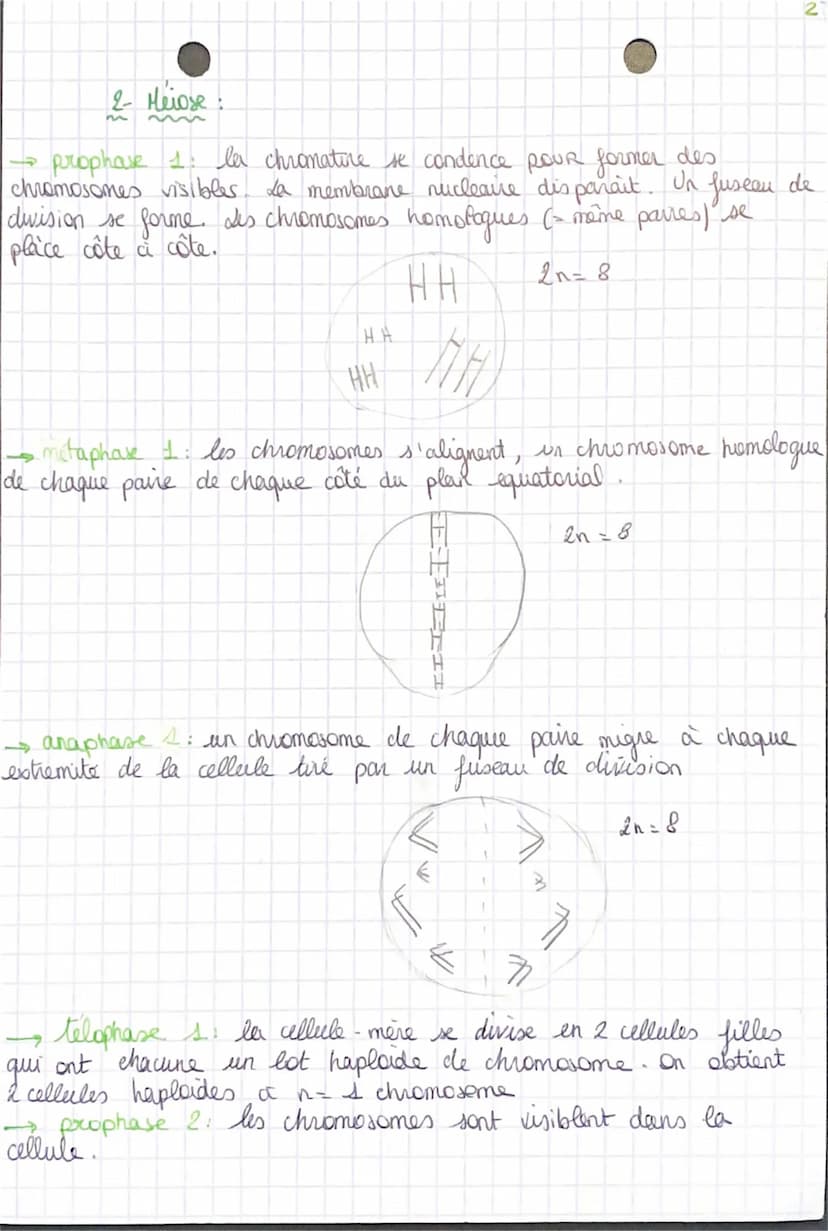 2
2- Méiose :
→ prophase 1 : la chromatine se condence pour former des
chromosomes visibles. La membrane nucleaire disparaît. Un fuseau de
division se forme. Les chromosomes homologues (= même paires) se
place côte à côte.
2n = 8
→ métaphase 1 : les chromosomes s'alignent, un chromosome homologue
de chaque paire de chaque côté du plan equatorial.
2n = 8
→ anaphase 1 : un chromosome de chaque paire migre à chaque
extremite de la cellule tiré par un fuseau de division
2n = 8
→ télophase 1 : la cellule-mère se divise en 2 cellules filles
qui ont chacune un lot haploide de chromosome. On obtient
2 cellules haploides à n = 1 chromosome
→ prophase 2 : les chromosomes sont visiblent dans la
cellule.